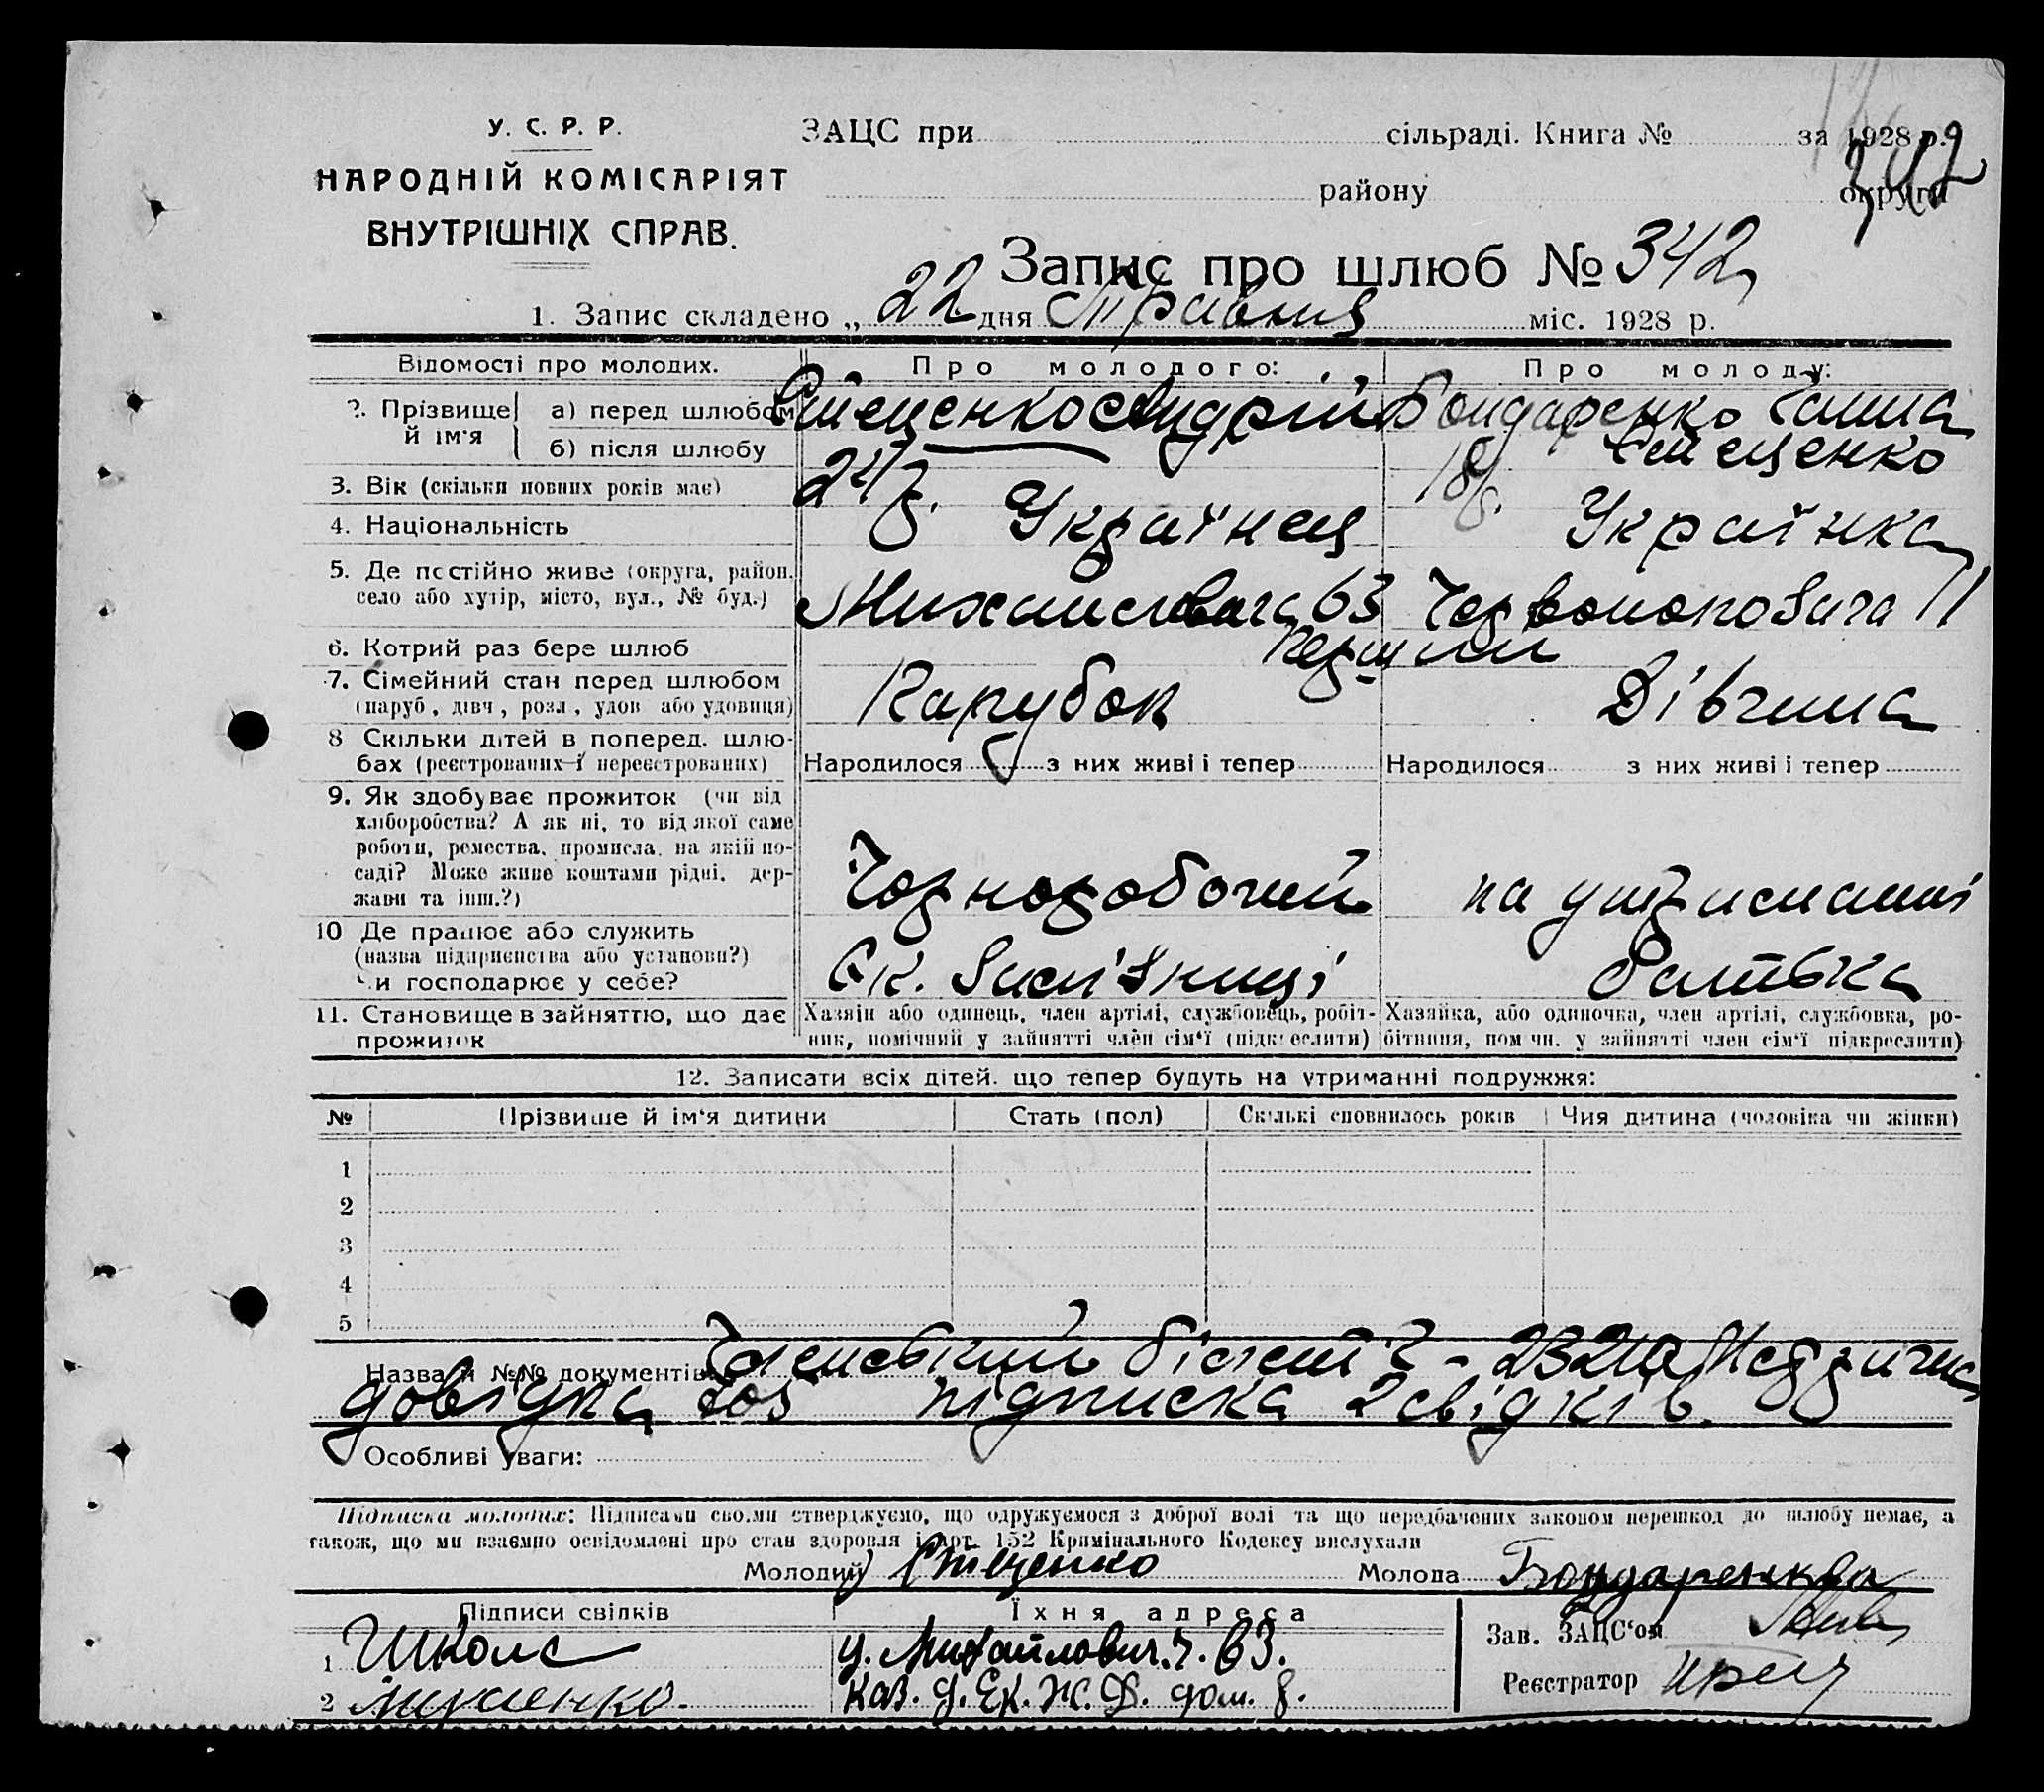 У. С. Р. Р.
НАРОДНІЙ КОМІСАРІЯТ
ВНУТРІШНІХ СПРАВ.
ЗАЦС при сільраді. Книга № за 1928 р.
району округи
342
Запис про шлюб № 342
1. Запис складено „ 22 дня Травня міс. 1928 р.
Відомості про молодих. Про молодого: Про молоду:
2. Прізвище й ім'я а) перед шлюбом Стеценко Андрій Бондаренко Ганна
б) після шлюбу Стеценко
3. Вік (скільки повних років має) 18
4. Національність Українец Українка
5. Де постійно живе (округа, район, село або хутір, місто, вул., № буд.) 63 11
6. Котрий раз бере шлюб Перший
7. Сімейний стан перед шлюбом (паруб., дівч., розл., удов. або удовиця) Парубок Дівчина
8 Скільки дітей в поперед. шлюбах (реєстрованих і нереєстрованих) Народилося з них живі і тепер Народилося з них живі і тепер
9. Як здобуває прожиток (чи від хліборобства? А як ні, то від якої саме роботи, ремества, промисла, на якій посаді? Може живе коштами рідні, держави та інш.?) Чорноробочий на утрисманні
10 Де працює або служить (назва підприємства або установи?) Чи господарює у себе? Ек. Залізниці батька
11. Становище в зайняттю, що дає прожиток
Хазяїн або одинець, член артілі, службовець, робітник, помічний у зайнятті член сім'ї (підкреслити)
Хазяйка, або одиночка, член артілі, службовка, робітниця, помічн. у зайнятті член сім'ї підкреслити)
12. Записати всіх дітей, що тепер будуть на утриманні подружжя:
№ Прізвище й ім'я дитини Стать (пол) Скількі сповнилось років Чия дитина (чоловіка чи жінки)
1
2
3
4
5
Назва й №№ документів: Членський білет
довідка підписка 2 свідків.
Особливі уваги:
Підписка молодих: Підписами своїми стверджуємо, що одружуємося з доброї волі та що передбачених законом перешкод до шлюбу немає, а
також, що ми взаємно освідомлені про стан здоровля і арт. 152 Кримінального Кодексу вислухали
Молодий Стеценко Молода Бондаренкова
Підписи свідків Їхня адреса Зав. ЗАЦС'ом
1 у. Михайлович. ч. 63.
2 каз. д. Ек. Ж. Д. дом. 8. Реєстратор